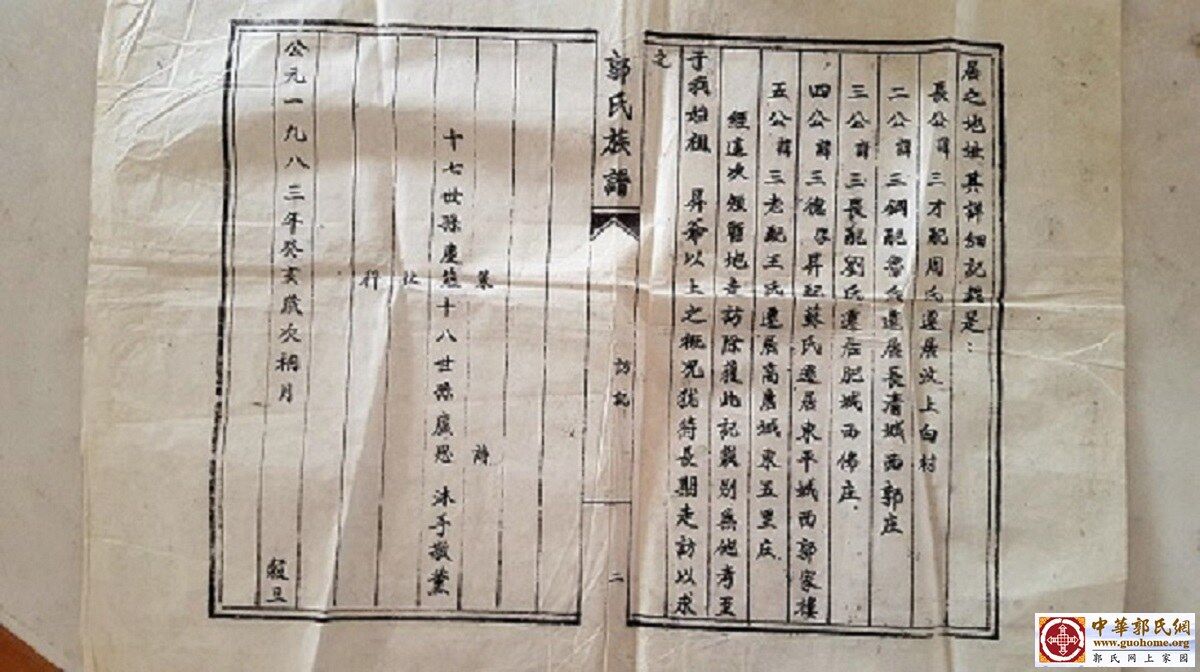 居之地址其詳細記載是：
長公諱三才配周氏遷居汶上白村
二公諱三綱配魯氏遷居長清城西郭庄
三公諱三畏配劉氏遷居肥城西傅庄
四公諱三德字昇配蘇氏遷居東平城西郭家樓
五公諱三老配王氏遷居高唐城東五里庄
經這次短暫地走訪除獲此記載別無他考至
于我始祖 昇爺以上之概况猶待長期走訪以求
之
郭氏族譜
訪記
二
業 詩
十七世孫慶 十八世孫廣思 沐手敬
行
公元一九八三年癸亥歲次桐月
穀旦
中華郭氏網
www.guohome.org
郭氏网上家园